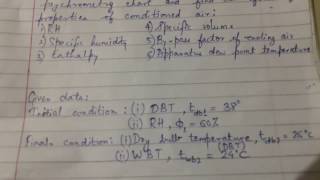 psychrometry chart and find
properties of conditioned air:
1) RH 4) Specific volume
2) Specific humidity 5) By-pass factor of cooling air
3) Enthalpy 6) Apparatus dew point temperature
Given data:
Initial condition: (i) DBT, tdb1 = 38°
(ii) RH, ϕ1 = 60%
Final condition: (i) Dry bulb temperature, tdb2 = 26°C
(DBT)
(ii) WBT, twb2 = 24°C